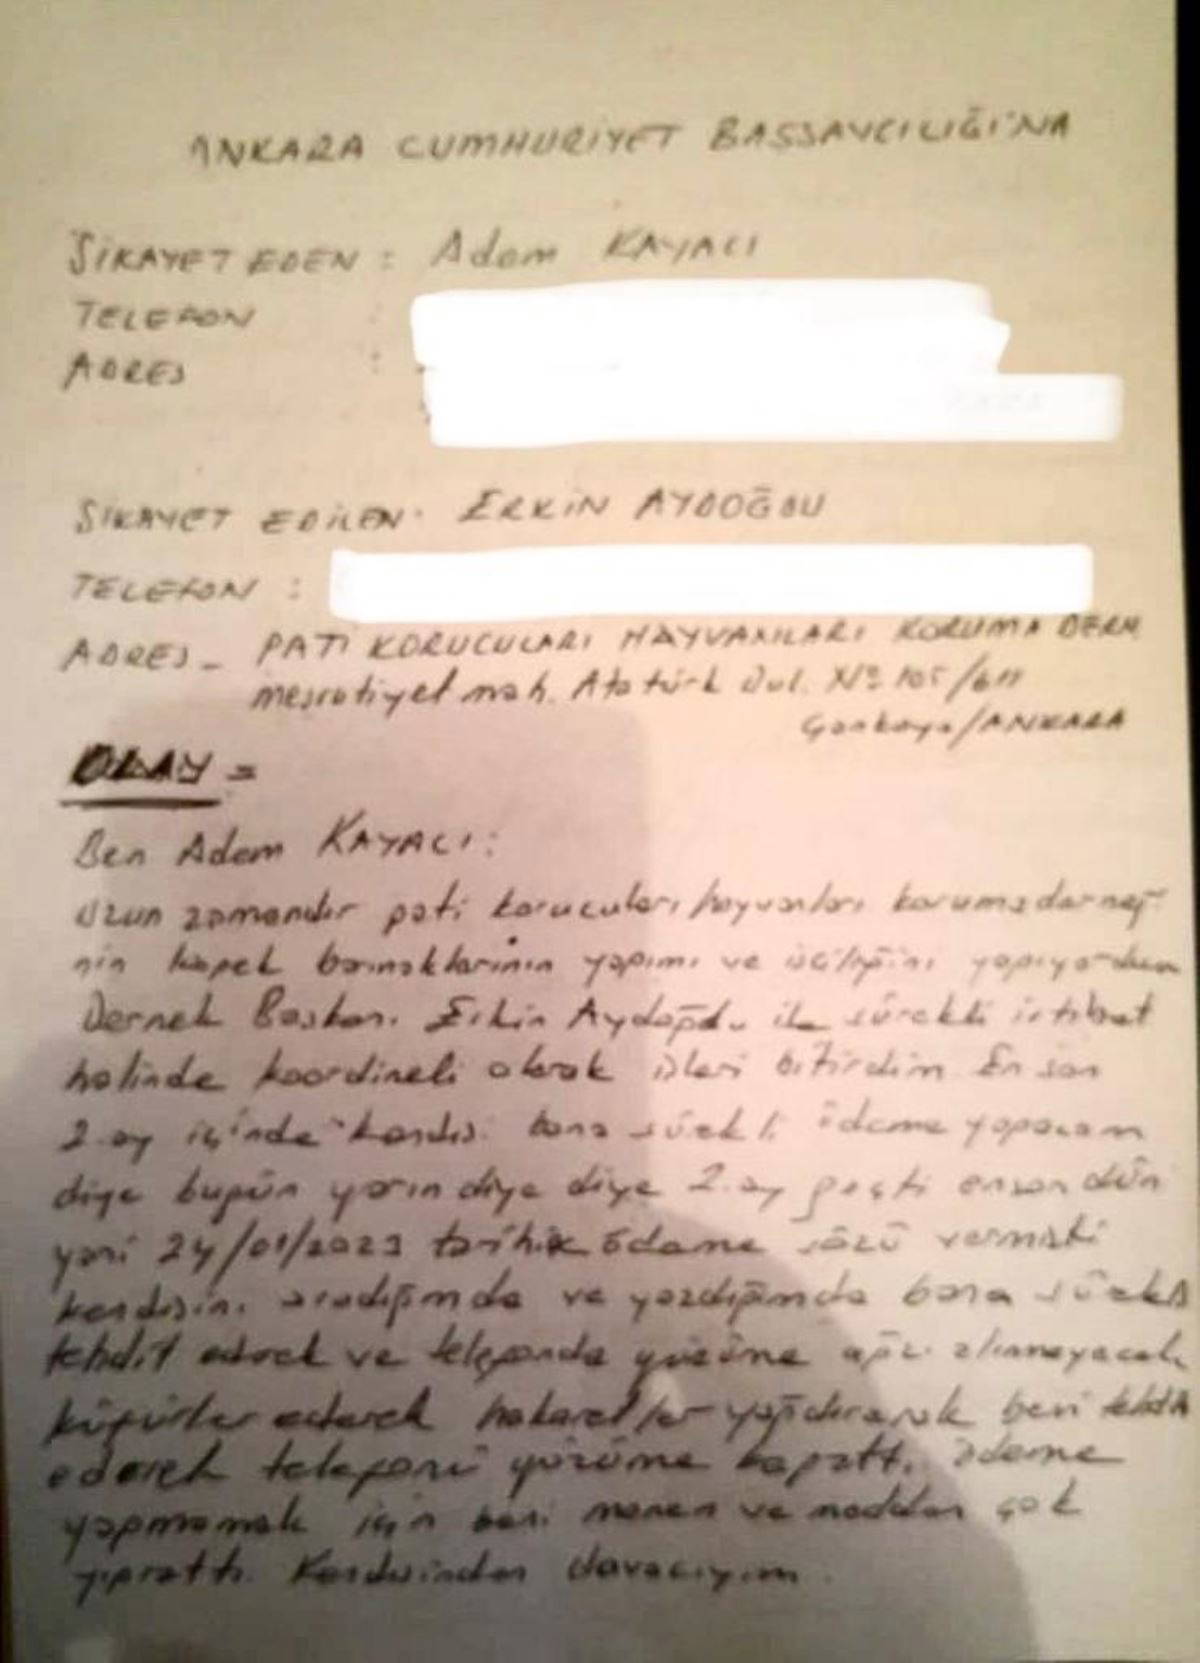 ANKARA CUMHURİYET BAŞSAVCILIĞI'NA
ŞİKAYET EDEN : Adem KAYACI
TELEFON :
ADRES :
ŞİKAYET EDİLEN. ERKİN AYDOĞDU
TELEFON :
ADRES - PATİ KORUCULARI HAYVANLARI KORUMA DERN
meşrutiyet mah. Atatürk Bul. No 105/611
Çankaya/ANKARA
OLAY =
Ben Adem KAYACI:
Uzun zamandır pati korucuları hayvanları koruma derneği
nin köpek barınaklarının yapımı ve işçiliğini yapıyordum
Dernek Başkanı Erkin Aydoğdu ile sürekli irtibat
halinde koordineli olarak işleri bitirdim En son
2 ay içinde kendisi bana sürekli ödeme yapacam
diye bugün yarın diye diye 2. ay geçti en son dün
yani 24/01/2023 tarihik ödeme sözü vermişti
kendisini aradığımda ve yazdığımda bana sürekli
tehdit ederek ve telefonda yüzüme ağzı alınmayacak
küfürler ederek hakaretler yağdırarak beni tehdit
ederek telefonu yüzüme kapattı. ödeme
yapmamak için beni manen ve madden çok
yıprattı. Kendisinden davacıyım.